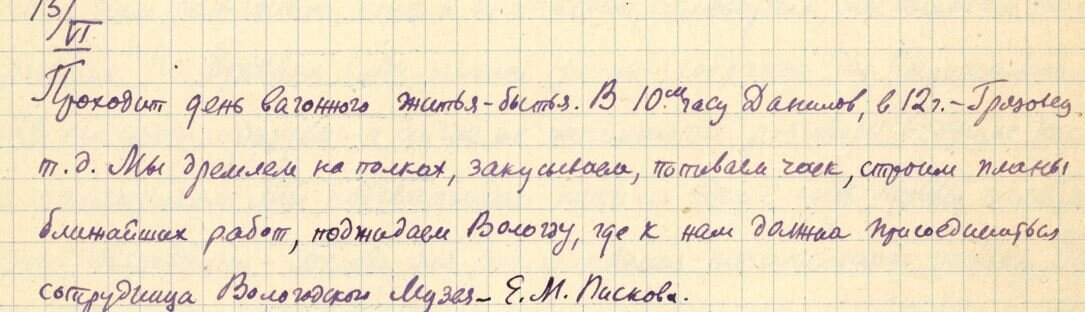 15/VI
Проходит день вагонного житья-бытья. В 10ом часу Данилов, в 12 ч. - Грязовец
т.д. Мы дремлем на полках, закусываем, попиваем чаек, строим планы
ближайших работ, поджидаем Вологду, где к нам должна присоединиться
сотрудница Вологодского Музея - Е.М. Пискова.